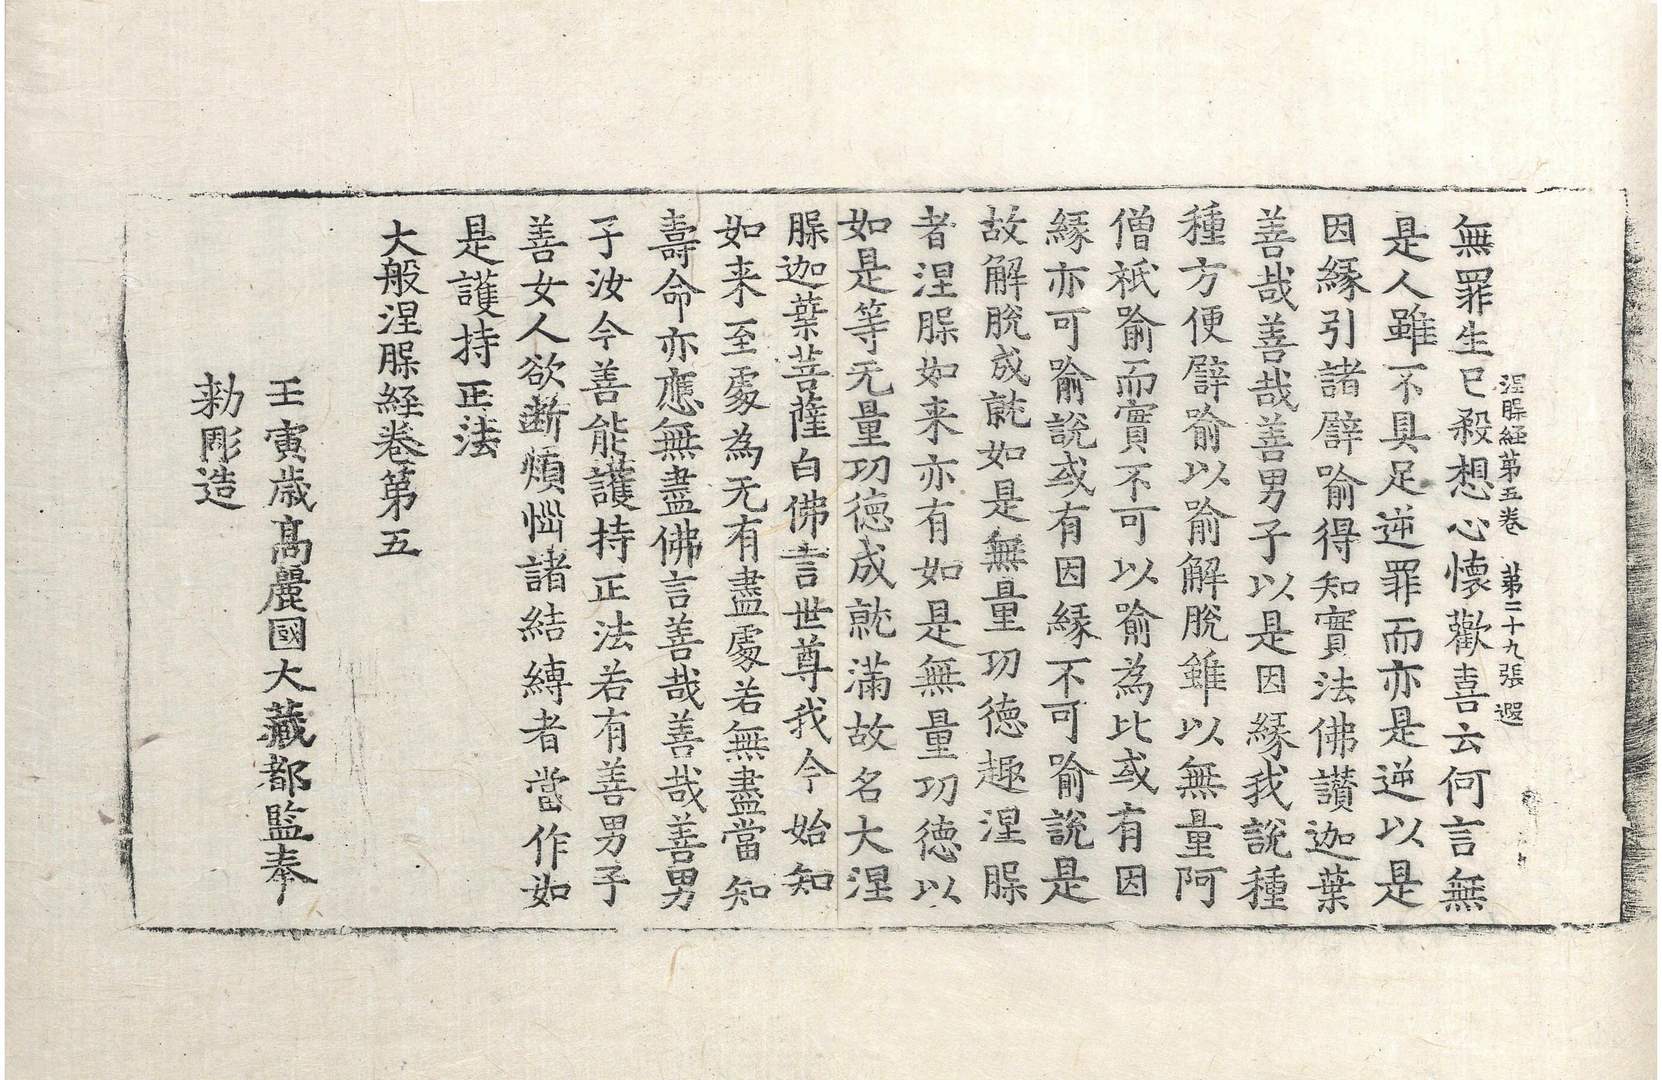 涅槃経第五卷 第二十九張 遐
無罪生已殺想心懷歡喜云何言無
是人雖不具足逆罪而亦是逆以是
因緣引諸譬喻得知實法佛讃迦葉
善哉善哉善男子以是因緣我說種
種方便譬喻以喻解脫雖以無量阿
僧祇喻而實不可以喻為比或有因
緣亦可喻說或有因緣不可喻說是
故解脫成就如是無量功德趣涅槃
者涅槃如来亦有如是無量功德以
如是等无量功德成就滿故名大涅
槃迦葉菩薩白佛言世尊我今始知
如来至處為无有盡處若無盡當知
壽命亦應無盡佛言善哉善哉善男
子汝今善能護持正法若有善男子
善女人欲断煩惱諸結縛者當作如
是護持正法
大般涅槃経卷第五
壬寅歲高麗國大藏都監奉
勑彫造